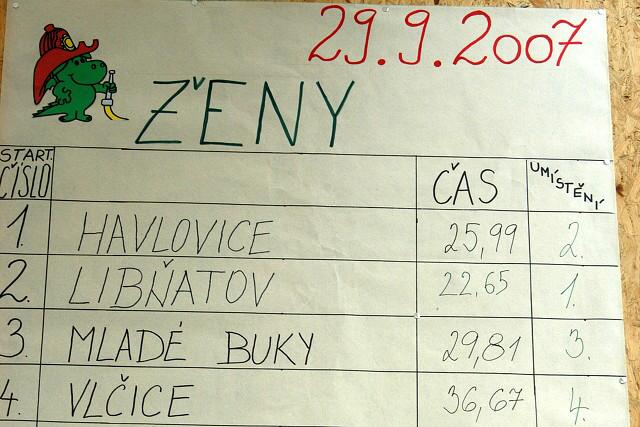 29.9.2007
ŽENY
START. ČÍSLO ČAS UMÍSTĚNÍ
1. HAVLOVICE 25,99 2.
2. LIBŇATOV 22,65 1.
3. MLADÉ BUKY 29,81 3.
4. VLČICE 36,67 4.